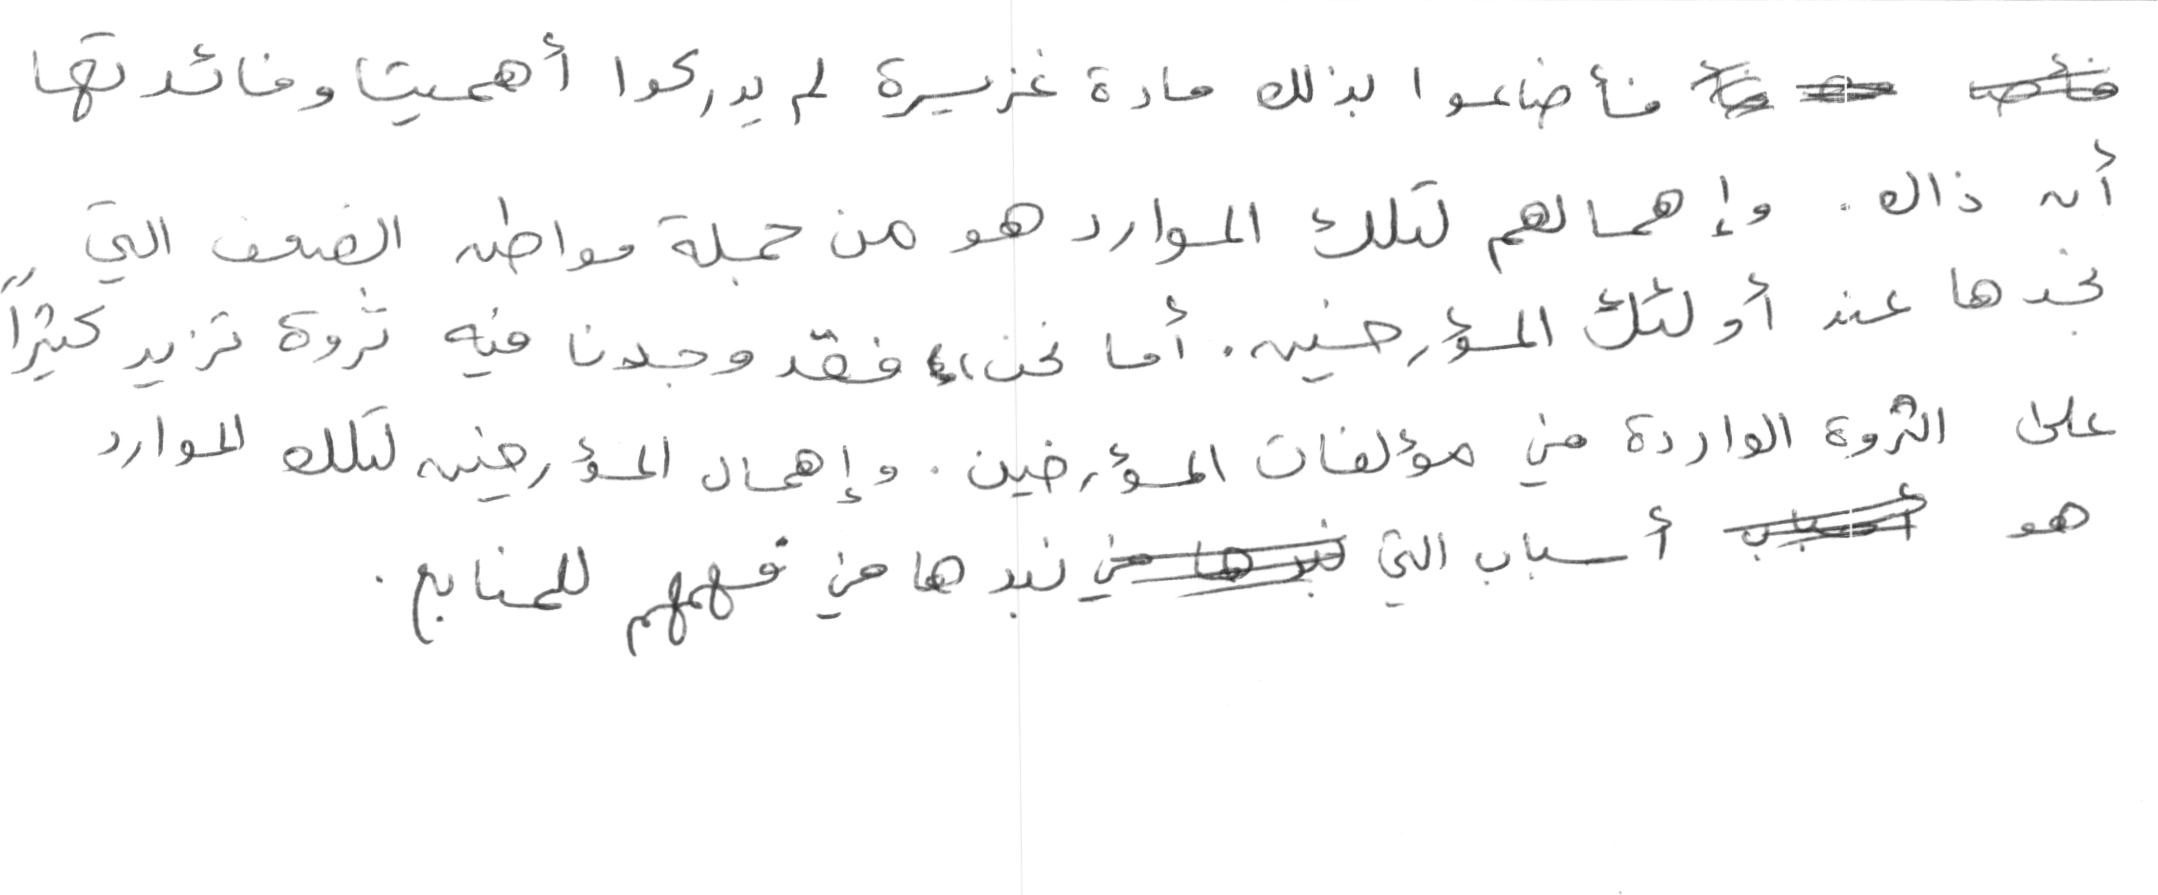 فأضاعوا بذلك مادة غزيرة لم يدركوا أهميتا وفائدتها
أن ذاك. وإهمالهم لتلك الموارد هو من جملة مواطن الضعف التي
نجدها عند أولئك المؤرخين. أما نحن، فقد وجدنا فيه ثروة تزيد كثيرًا
على الثروة الواردة في مؤلفات المؤرخين. وإهمال المؤرخين لتلك الموارد
هو أسباب التي نجدها في فهمهم للمنابع.